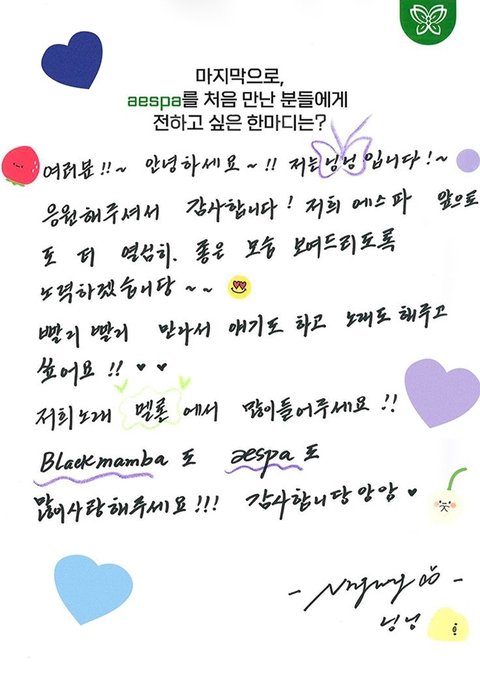 마지막으로,
aespa를 처음 만난 분들에게
전하고 싶은 한마디는?
여러분!!~ 안녕하세요~!! 저는 닝닝입니다!~
응원해주셔서 감사합니다! 저희 에스파 앞으로
도 더 열심히. 좋은 모습 보여드리도록
노력하겠습니당~~
빨리 빨리 만나서 얘기도 하고 노래도 해주고
싶어요!! ♥♥
저희노래 멜론에서 많이들어주세요!!
Blackmamba도 aespa도
많이사랑해주세요!!! 감사합니당앙앙♥
- Ningning -
닝닝